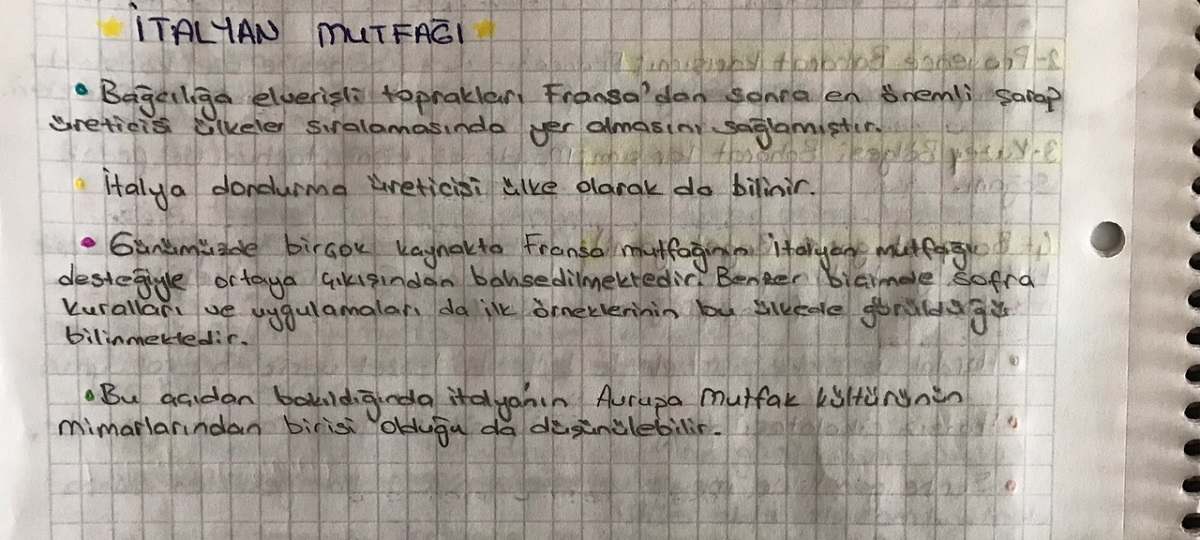 İTALYAN MUTFAĞI
• Bağcılığa elverişli toprakları Fransa'dan sonra en önemli şarap
üreticisi ülkeler sıralamasında yer almasını sağlamıştır.
• İtalya dondurma üreticisi ülke olarak da bilinir.
• Günümüzde birçok kaynakta Fransa mutfağının İtalyan mutfağı
desteğiyle ortaya çıkışından bahsedilmektedir. Benzer biçimde sofra
kuralları ve uygulamaları da ilk örneklerinin bu ülkede görüldüğü
bilinmektedir.
• Bu açıdan bakıldığında İtalya'nın Avrupa Mutfak kültürünün
mimarlarından birisi olduğu da düşünülebilir.